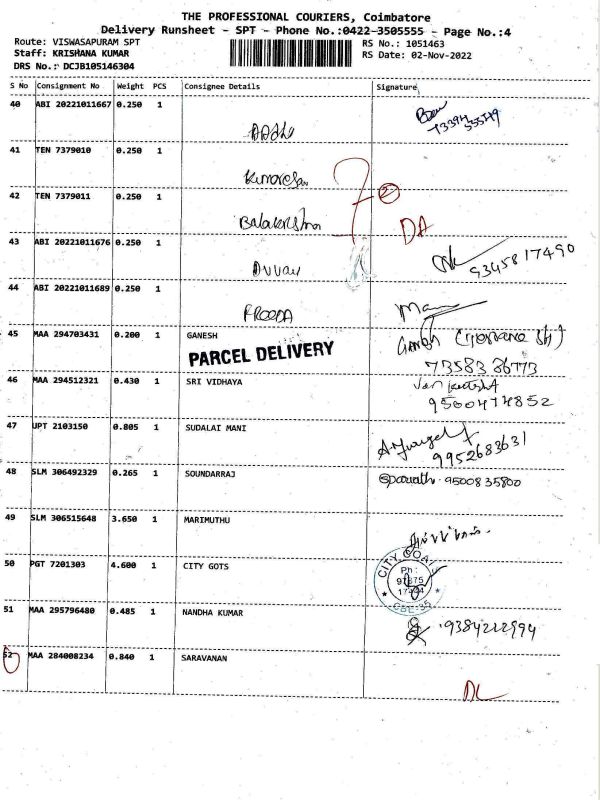 THE PROFESSIONAL COURIERS, Coimbatore
Delivery Runsheet - SPT - Phone No.:0422-3505555 - Page No.:4
Route: VISWASAPURAM SPT
RS No.: 1051463
Staff: KRISHANA KUMAR
RS Date: 02-Nov-2022
DRS No.: DCJB105146304
S No Consignment No Weight PCS Consignee Details Signature
40 ABI 20221011667 0.250 1
41 TEN 7379010 0.250 1
Kumaresan
42 TEN 7379011 0.250 1
Balakrishna
DA
43 ABI 20221011676 0.250 1
9345817490
44 ABI 20221011689 0.250 1
45 MAA 294703431 0.200 1 GANESH
PARCEL DELIVERY
7358336773
46 MAA 294512321 0.430 1 SRI VIDHAYA
9500474852
47 UPT 2103150 0.805 1 SUDALAI MANI
9952683631
48 SLM 306492329 0.265 1 SOUNDARRAJ
9500835800
49 SLM 306515648 3.650 1 MARIMUTHU
50 PGT 7201303 4.600 1 CITY GOTS
Ph:
CBE-35
51 MAA 295796480 0.485 1 NANDHA KUMAR
9384222994
52 MAA 284008234 0.840 1 SARAVANAN
DL